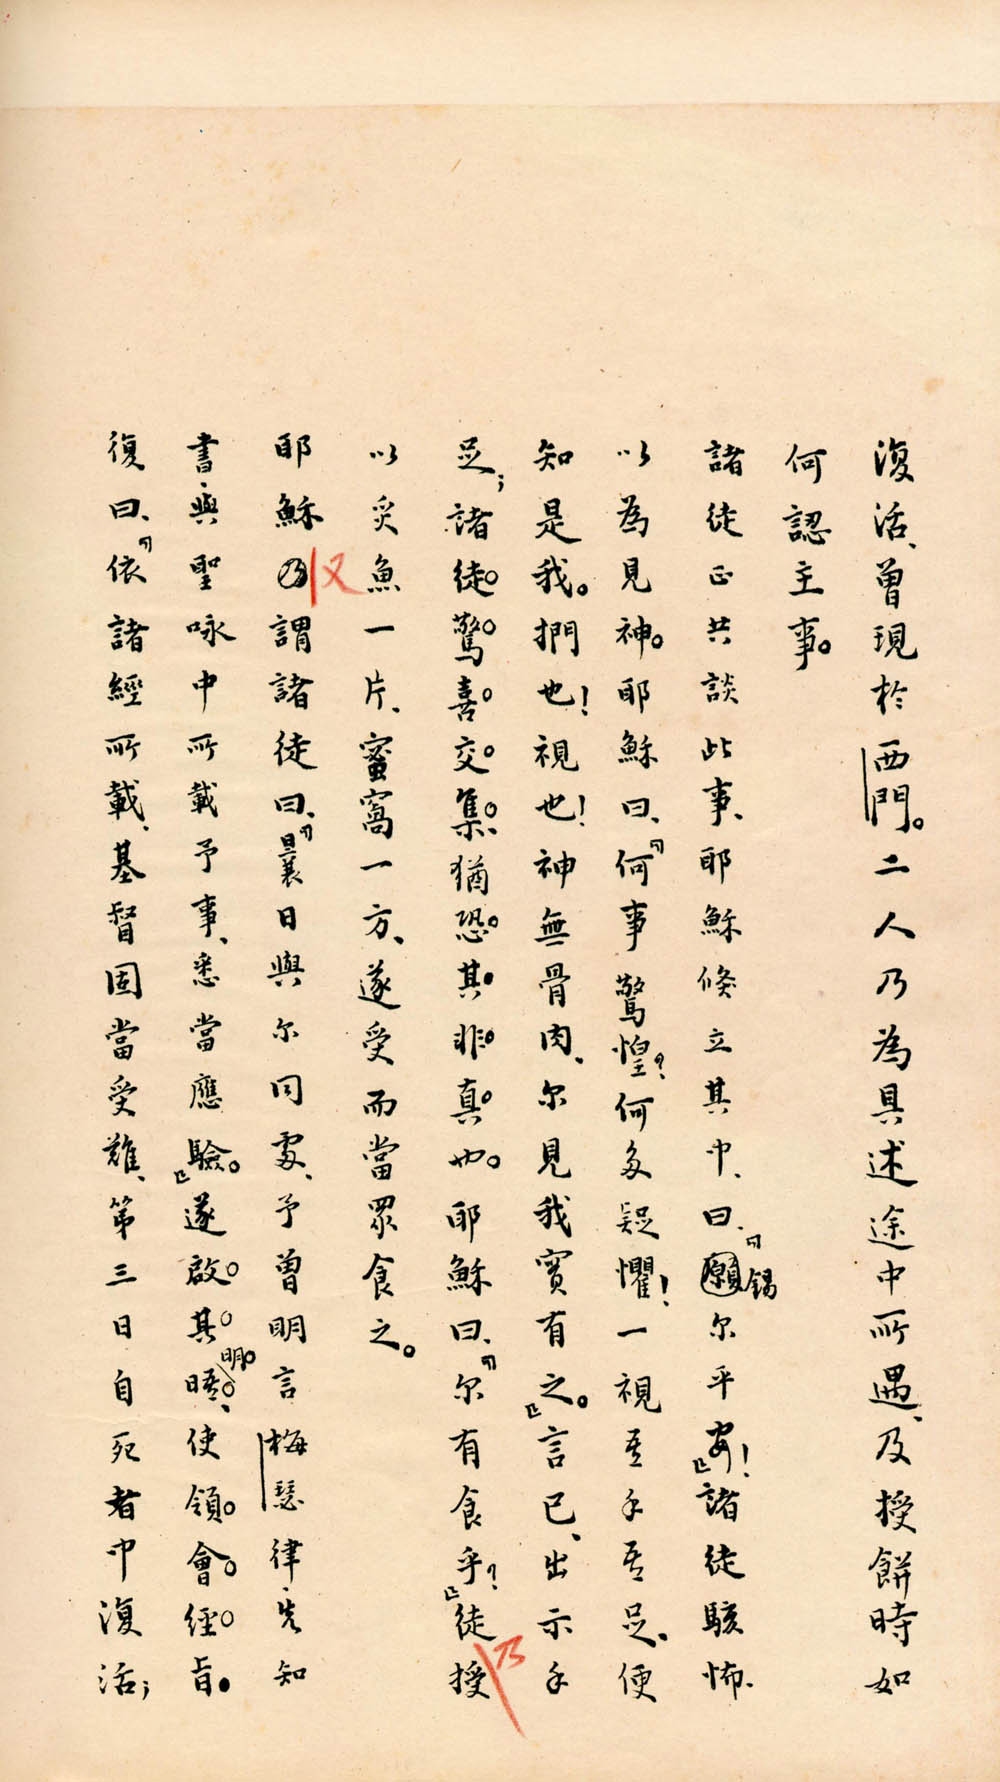 復活、曾現於西門。二人乃為具述途中所遇、及授餅時如
何認主事。
諸徒正共談此事、耶穌倏立其中、曰、「願錫尔平安！」諸徒駭怖、
以為見神。耶穌曰、「何事驚惶？何多疑懼！一視吾手吾足、便
知是我。捫也！視也！神無骨肉、尔見我實有之。」言已、出示手
足；諸徒驚喜交集、猶恐其非真也。耶穌曰、「尔有食乎？」徒乃授
以炙魚一片、蜜窩一方、遂受而當眾食之。
耶穌乃又謂諸徒曰、「曩日與尔同處、予曾明言梅瑟律先知
書、與聖咏中所載予事、悉當應驗。」遂啟其明晤、使領會經旨。
復曰、「依諸經所載、基督固當受難、第三日自死者中復活；